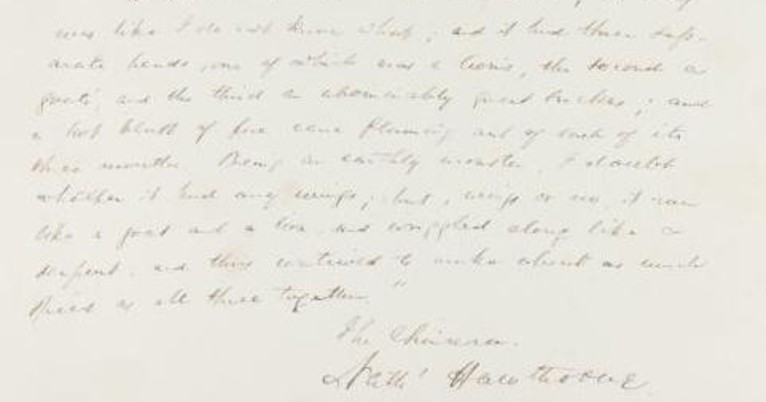 was like I do not know what; and it had three sep-
arate heads, one of which was a lion's, the second a
goat's, and the third an abominably great snake's; and
a hot blast of fire came flaming out of each of its
three mouths. Being an earthly monster, I doubt
whether it had any wings; but, wings or no, it ran
like a goat and a lion, and wriggled along like a
serpent, and thus contrived to make about as much
speed as all three together."
The Chimaera.
Nath' Hawthorne